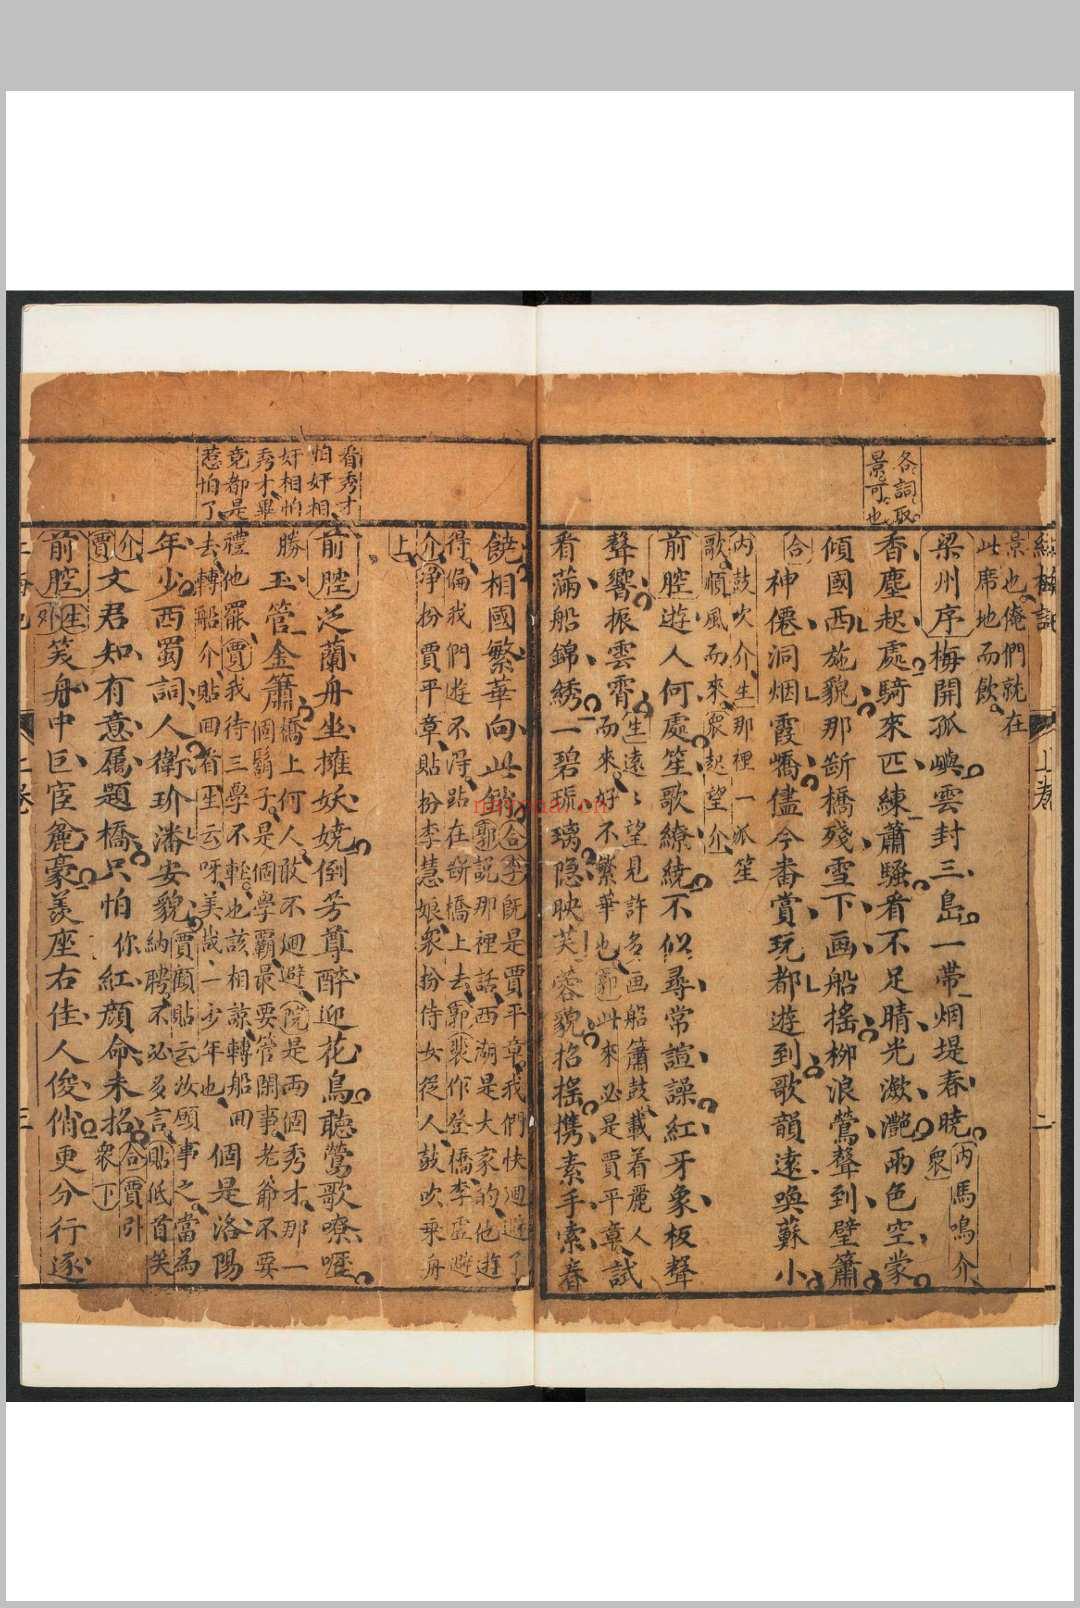 各詞取
景可也
紅梅記
上卷
二
景也俺們就在
此席地而飲
梁州序梅開孤嶼雲封三島一帶烟堤春曉眾內馬鳴介
香塵起處騎來匹練蕭騷看不足晴光瀲灧雨色空蒙
傾國西施貌那斷橋殘雪下画船搖柳浪鶯聲到壁簫
合神僊洞烟霞嶠儘今番賞玩都遊到歌韻遠喚蘇小
內鼓吹介生那裡一派笙
歌順風而來眾起望介
前腔遊人何處笙歌繚繞不似尋常諠譟紅牙象板聲
聲響振雲霄生遠遠望見許多画船簫鼓載着麗人
而來好不繁華也郭此來必是賈平章試
看滿船錦綉一碧琉璃隐映芙蓉貌招搖携素手索春
饒相國繁華向此銷合李既是賈平章我們快迴避了
得偏我們遊不得站在斷橋上去郭裴作登橋李虛避
介淨扮賈平章貼扮李慧娘衆扮侍女從人鼓吹乘舟
上
看秀才
怕奸相
奸相怕
秀才畢
竟都是
惹怕了
前腔泛蘭舟坐擁妖嬈倒芳尊醉迎花鳥聽鶯歌嘹嚦
勝玉管金簫橋上何人敢不迴避院是兩個秀才那一
個鬍子是個學霸最要管閑事老爺不要
禮他罷賈我待三學不輕也該相諒轉船囬
去轉船介貼回看生云呀美哉一少年也個是洛陽
年少西蜀詞人衛玠潘安貌賈顧貼云汝願事之當為
納聘不必多言貼低首笑
介文君知有意屬題橋只怕你紅顏命未招合賈引
賈眾下
前腔生外笑舟中巨宦麄豪羨座右佳人俊俏更分行逐